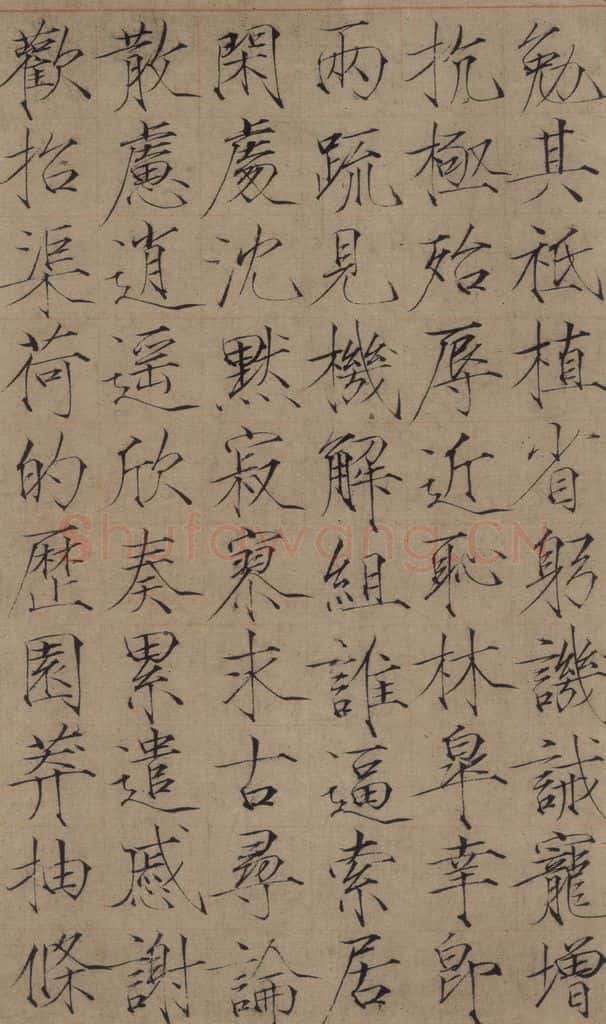 勉其祗植省躬譏誡寵增
抗極殆辱近恥林皐幸即
兩疏見機解組誰逼索居
閑處沈默寂寥求古尋論
散慮逍遥欣奏累遣慼謝
歡招渠荷的歷園莽抽條
Shufawang.CN